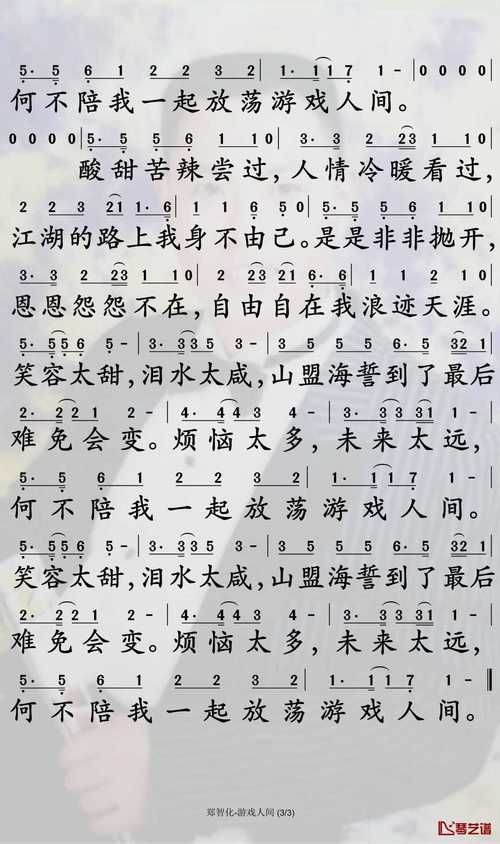 5· 5 6 1 2 2 3 2 | 1· 1 1 7 1 - | 0 0 0 0 |
何不陪我一起放荡游戏人间。
0 0 0 0 | 5· 5 5 6 1 10 | 3· 3 2 23 1 10 |
酸甜苦辣尝过,人情冷暖看过,
2 2 3 21 1· 6 | 1 1 6 50 | 5· 5 5 6 1 10 |
江湖的路上我身不由己。是是非非抛开,
3· 3 2 23 1 10 | 2 2 3 21 1· 6 | 1 1 2 10 |
恩恩怨怨不在,自由自在我浪迹天涯。
5· 5 5 6 5 - | 3· 3 3 5 3 - | 3 5 5 5 6· 5 | 32 1 |
笑容太甜,泪水太咸,山盟海誓到了最后
2· 2 2 1 2 - | 4· 4 4 3 4 - | 3· 3 3 31 |
难免会变。烦恼太多,未来太远,
5· 5 6 1 2 2 3 2 | 1· 1 1 7 1 - |
何不陪我一起放荡游戏人间。
5· 5 5 6 5 - | 3· 3 3 5 3 - | 3 5 5 5 6· 5 | 32 1 |
笑容太甜,泪水太咸,山盟海誓到了最后
2· 2 2 1 2 - | 4· 4 4 3 4 - | 3· 3 3 31 |
难免会变。烦恼太多,未来太远,
5· 5 6 1 2 2 3 2 | 1· 1 1 7 1 - ‖
何不陪我一起放荡游戏人间。
郑智化-游戏人间 (3/3)
琴艺谱